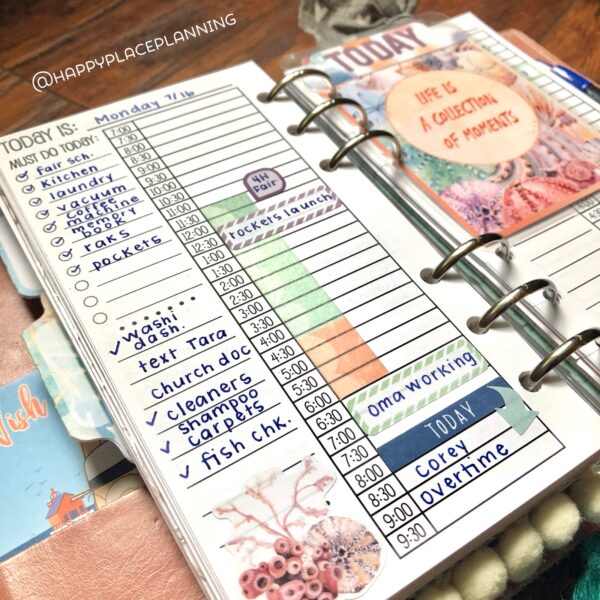 @HAPPYPLACEPLANNING
TODAY IS: Monday 7/16
MUST DO TODAY:
fair sch.
kitchen
laundry
vacuum
coffee machine
memory book
raks
pockets
washi dash.
text Tara
church doc
cleaners
shampoo carpets
fish chk.
7:00
7:30
8:00
8:30
9:00
9:30
10:00
10:30
11:00
11:30
12:00
12:30
1:00
1:30
2:00
2:30
3:00
3:30
4:00
4:30
5:00
5:30
6:00
6:30
7:00
7:30
8:00
8:30
9:00
9:30
4H Fair
rockets launch
oma working
TODAY
corey
overtime
TODAY
LIFE IS
A COLLECTION
OF MOMENTS